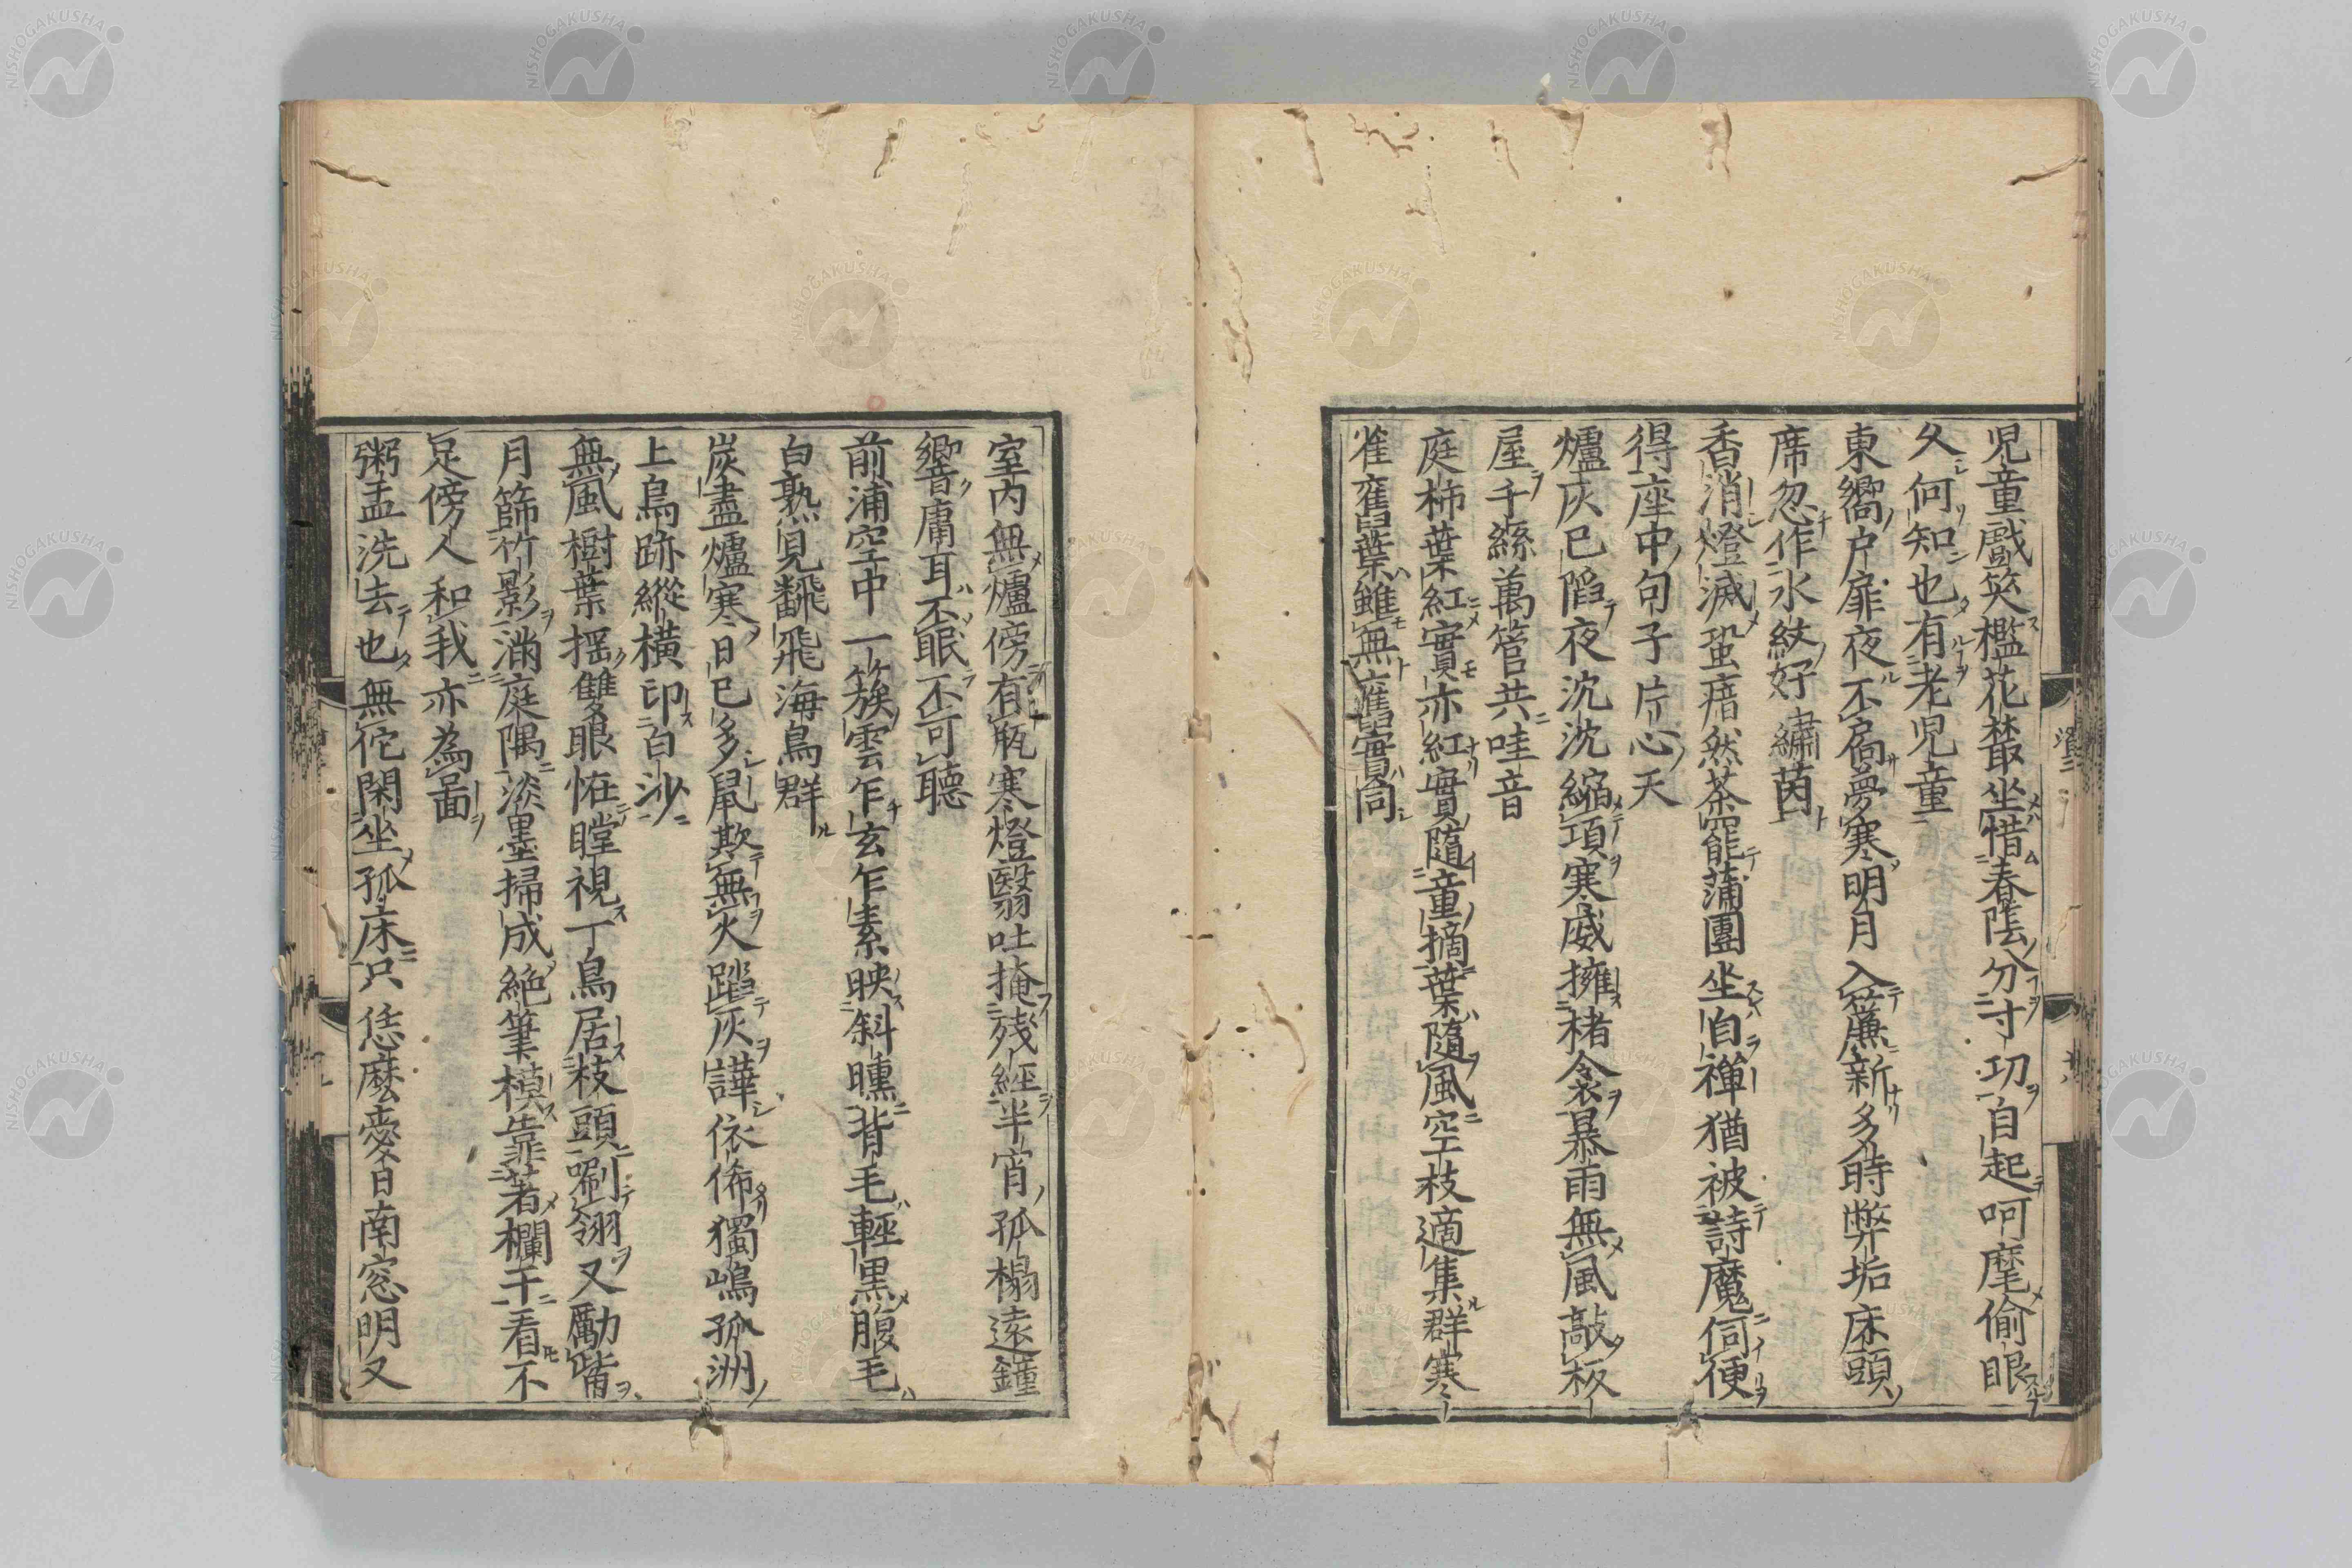 児童戯筴檻花叢坐惜春陰分寸功自起呵麾偷眼
久何知也有老児童
東嚮戸扉夜不扃夢寒明月入簾新多時弊垢床頭
席忽作水紋好繡茵
香消燈滅蛩瘖然茶罷蒲團坐自禪猶被詩魔伺便
得座中句子片心天
爐灰已陷夜沈沈縮項寒威擁楮衾暴雨無風敲板
屋千絲萬管共哇音
庭柿葉紅實亦紅實隨童摘葉隨風空枝適集群寒
雀舊葉雖無舊實同
室内無爐傍有瓶寒燈翳吐掩殘經半宵孤榻遠鐘
響庸耳不眠不可聽
前浦空中一簇雲乍玄乍素映斜曛背毛輕黒腹毛
白熟見飜飛海鳥群
炭盡爐寒日已多鼠欺無火蹈灰譁依俙獨嶋孤洲
上鳥跡縱横印白沙
無風樹葉揺雙眼恠瞠視丁鳥居枝頭唰翎又勵觜
月篩竹影滿庭隅淡墨掃成絶筆模靠著欄干看不
足傍人和我亦為啚
粥盂洗去也無佗閑坐孤床只恁麽愛日南窓明又
NISHOGAKUSHA